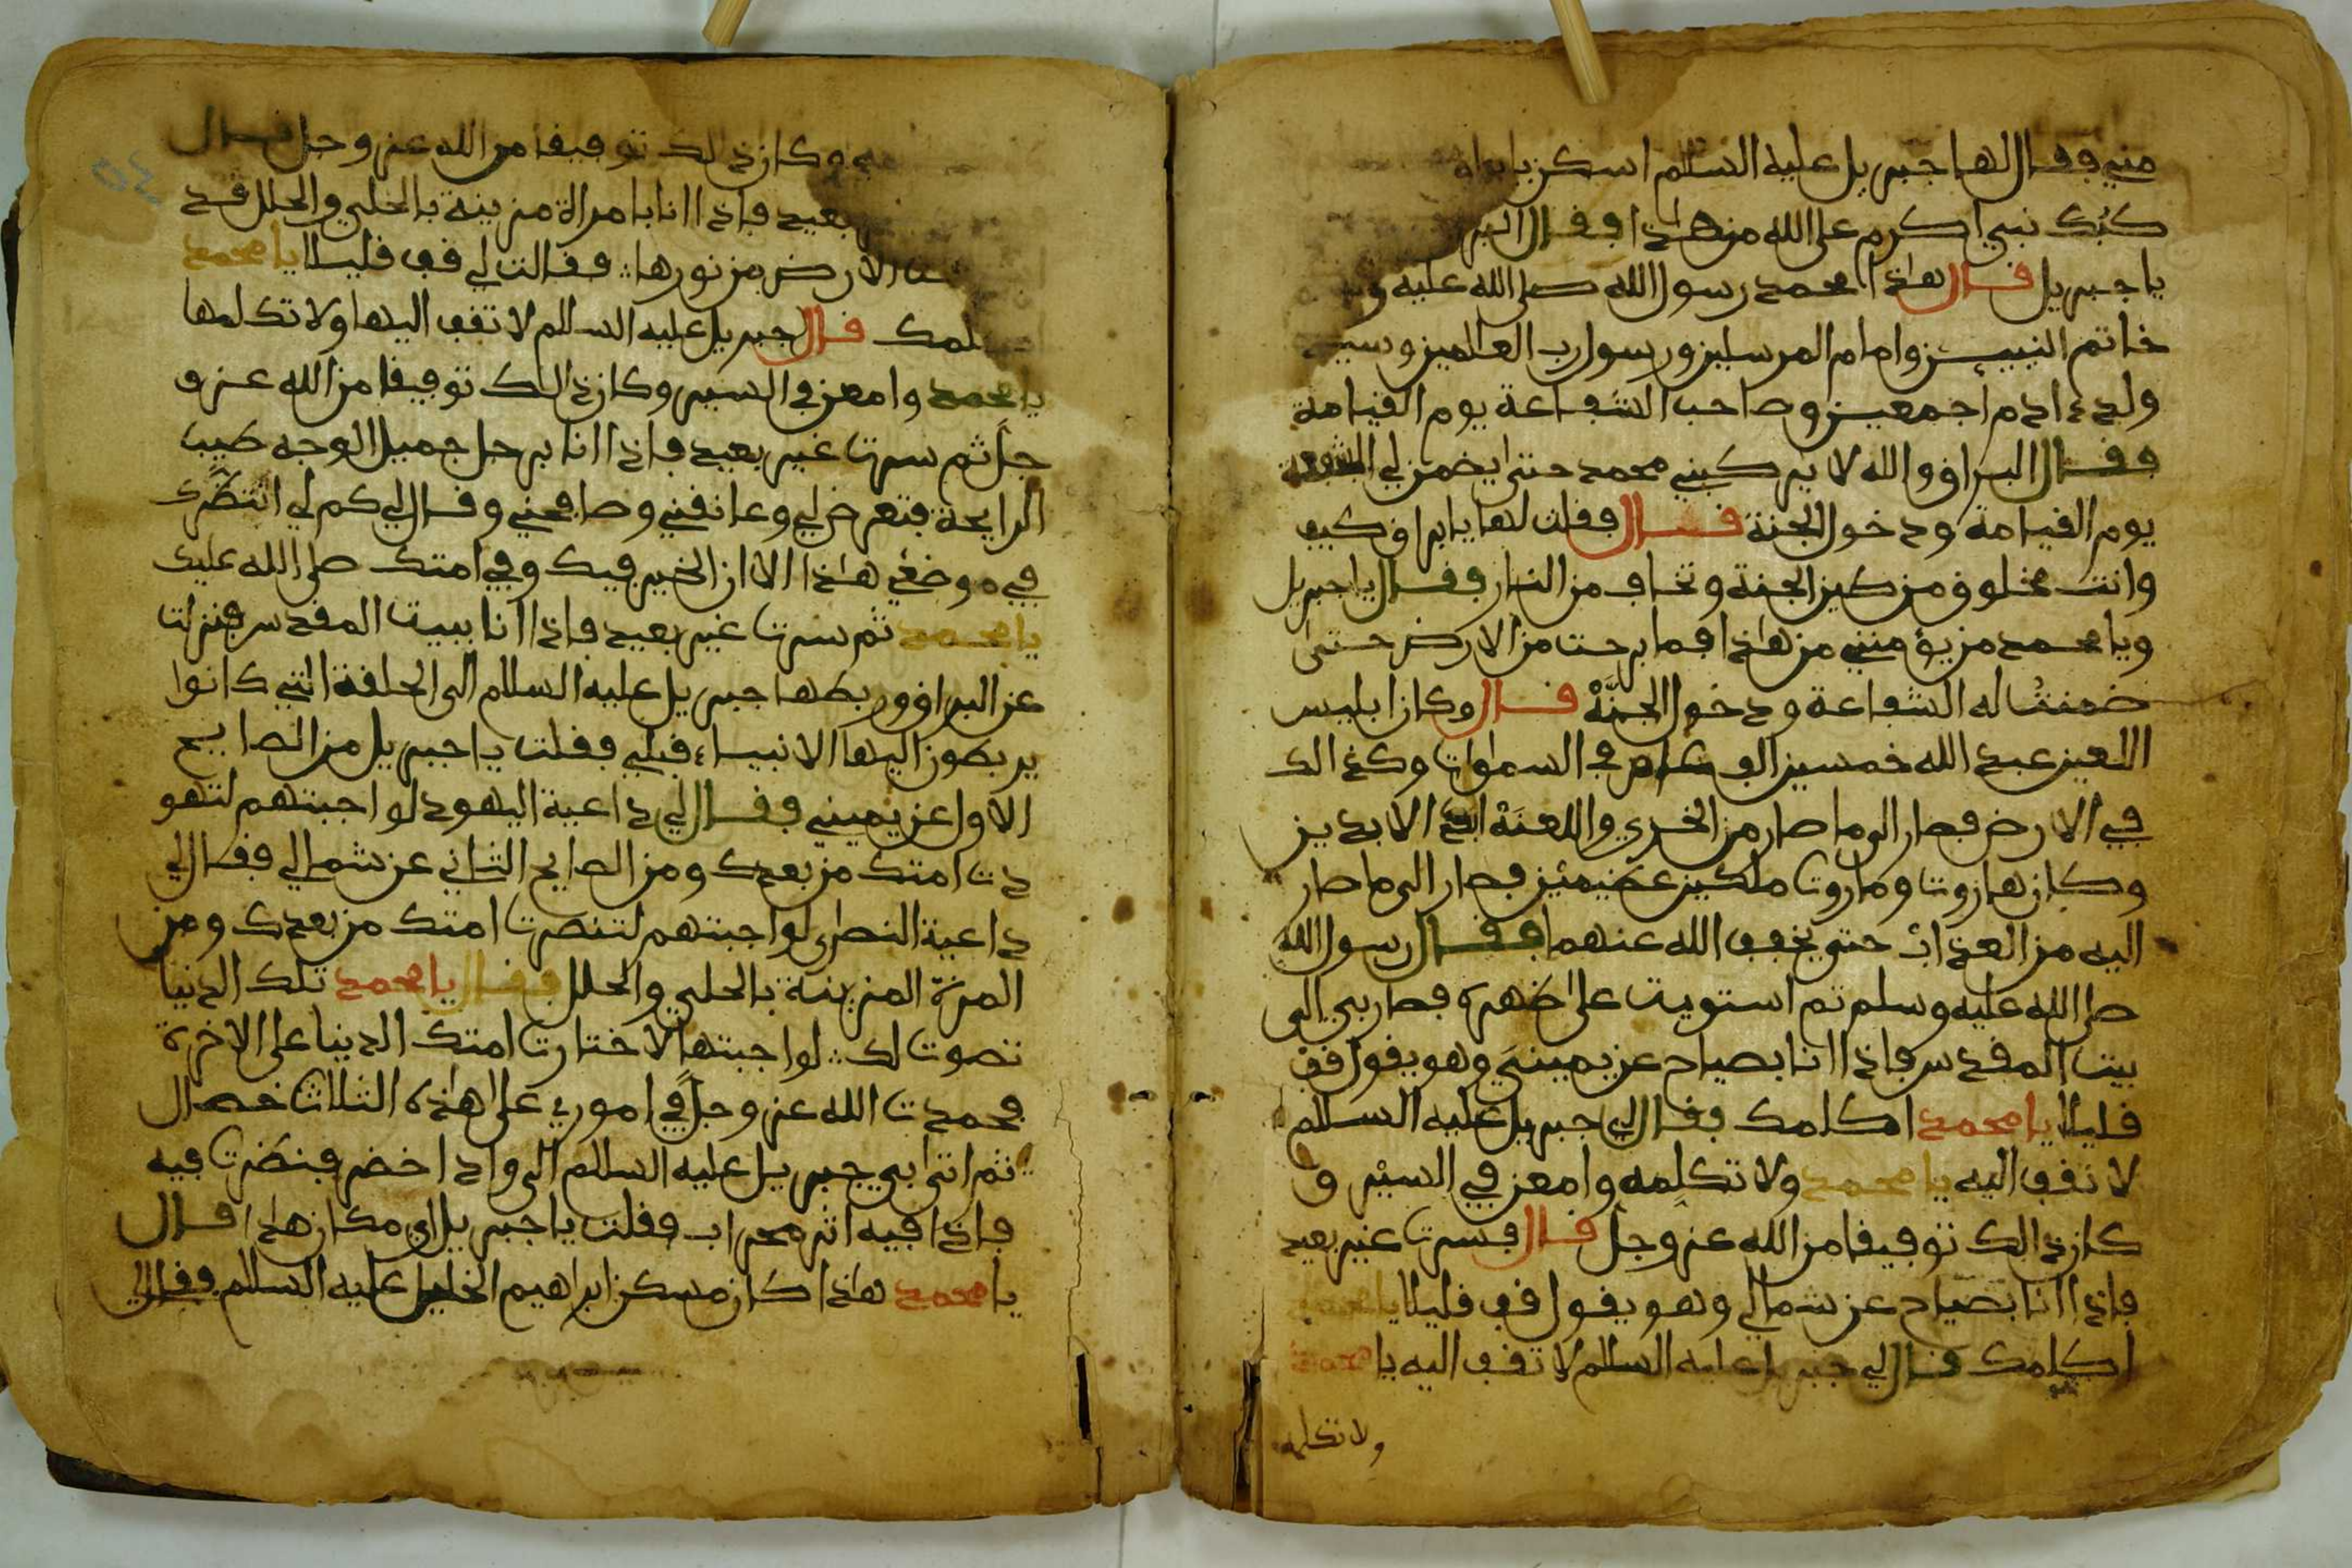 مني فقال لها جبريل عليه السلام اسكن يا براق
كبك نبي اكرم على الله من هذا فقال البر
يا جبريل قال هذا محمد رسول الله صلى الله عليه و
خاتم النبيين وامام المرسلين ورسول رب العالمين وسيد
ولد ءادم اجمعين وصاحب الشفاعة يوم القيامة
فقال البراق والله لا يركبني محمد حتى يضمن لي الشفعة
يوم القيامة ودخول الجنة قال فقلت لها يا براق كيف
وانت مخلوق من كين الجنة وتخاف من النار فقال يا جبريل
ويا محمد من يؤمنني من هذا فما برحت من الارض حتى
ضمنت له الشفاعة ودخول الجنة قال وكان ابليس
اللعين عبد الله خمسين الف عام في السموات وكذالك
في الارض فصار الى ما صار من الخزي واللعنة ابد الابدين
وكان هاروت وماروت ملكين عظيمين فصار الى ما صار
اليه من العذاب حتى يخفف الله عنهما فقال رسول الله
صلى الله عليه وسلم ثم استويت على ظهره فصار بي الى
بيت المقدس فاذا انا بصياح عن يميني وهو يقول قف
قليلا يا محمد اكلمك فقال لي جبريل عليه السلام
لا تقف اليه يا محمد ولا تكلمه وامعن في السير و
كان ذالك توفيقا من الله عز وجل قال فسرت غير بعيد
فاذا انا بصياح عن شمالي وهو يقول قف قليلا يا محمد
اكلمك قال لي جبريل عليه السلام لا تقف اليه يا محمد
ولا تكلمه
وكان ذلك توفيقا من الله عز وجل قال
بعيد فاذا انا بامراة مزينة بالحلي والحلل قد
الارض من نورها فقالت لي قف قليلا يا محمد
كلمك قال جبريل عليه السلام لا تقف اليها ولا تكلمها
يا محمد وامعن في السير وكان ذالك توفيقا من الله عز و
جل ثم سرت غير بعيد فاذا انا برجل جميل الوجه طيب
الرايحة فتعرض لي وعانقني وصافحني وقال لي كم لي انتظرك
في موضعي هذا الا ان الخير فيك وفي امتك صلى الله عليك
يا محمد ثم سرت غير بعيد فاذا انا ببيت المقدس فنزلت
عن البراق وربطها جبريل عليه السلام الى الحلقة التي كانوا
يربطون اليها الانبياء قبلي فقلت يا جبريل من الصايح
الاول عن يميني فقال لي داعية اليهود لو اجبتهم لتهو
دت امتك من بعدك ومن الصايح الثاني عن شمالي فقال لي
داعية النصرى لو اجبتهم لتنصرت امتك من بعدك ومن
المرة المزينة بالحلي والحلل فقال يا محمد تلك الدنيا
تصوت لك لو اجبتها لاختارت امتك الدنيا على الاخرة
فحمدت الله عز وجل في اموري على هذه الثلاث خصال
ثم اتى بي جبريل عليه السلام الى واد اخضر فنظرت فيه
فاذا فيه اثر محراب فقلت يا جبريل اي مكان هذا قال
يا محمد هذا كان مسكن ابراهيم الخليل عليه السلام فقال لي